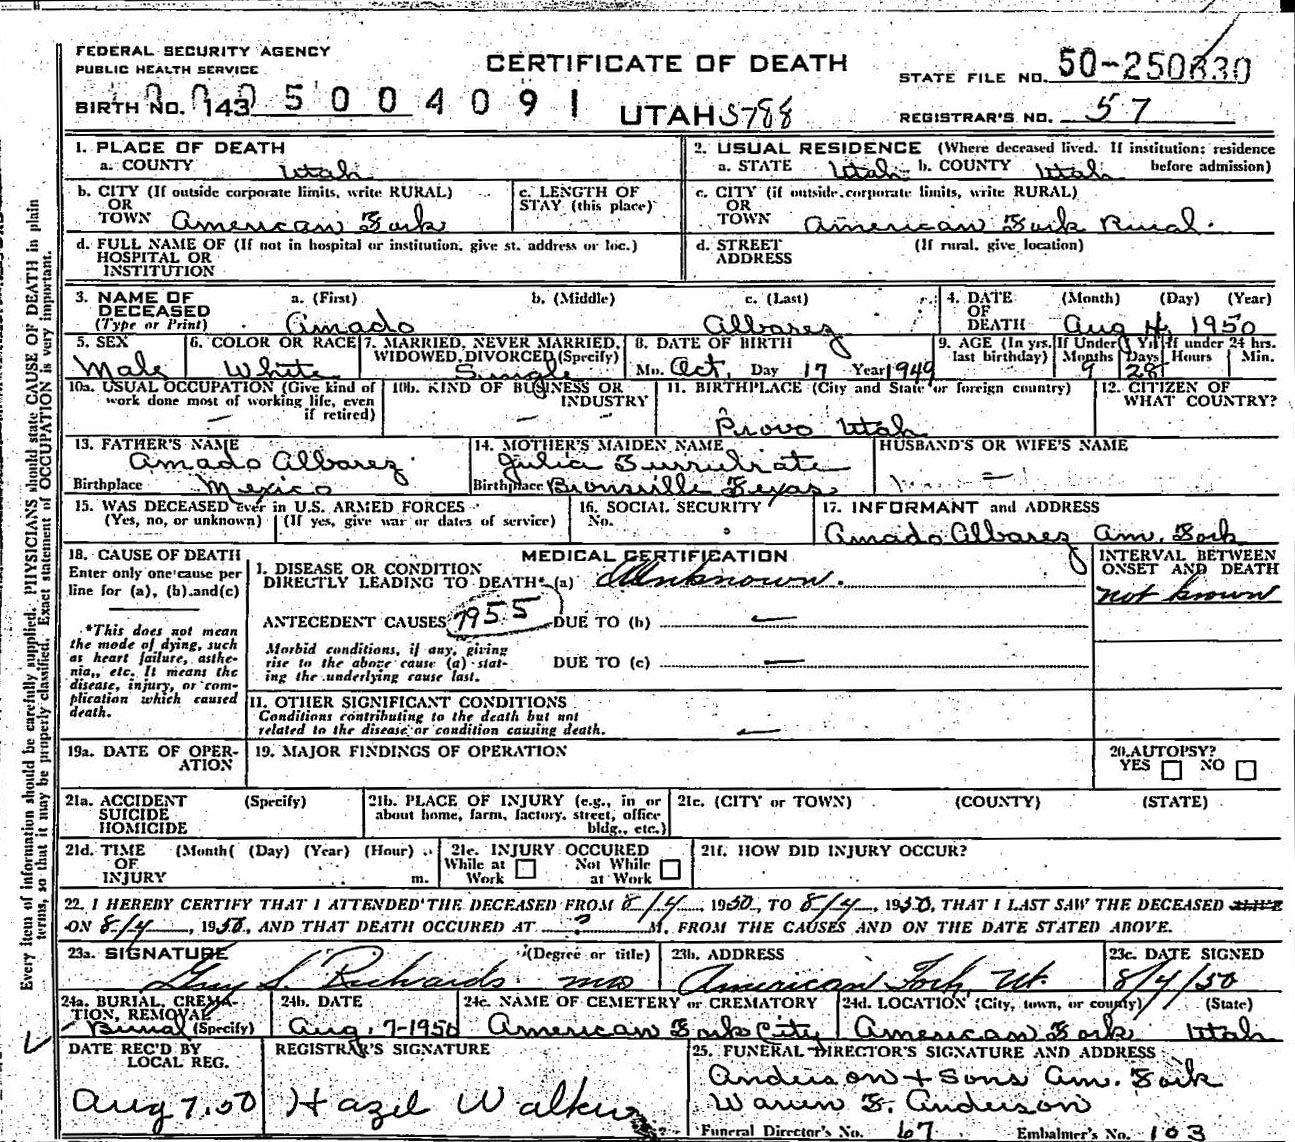 FEDERAL SECURITY AGENCY
PUBLIC HEALTH SERVICE
CERTIFICATE OF DEATH
STATE FILE NO. 50-250830
BIRTH NO. 143 5004091
UTAH 5788
REGISTRAR'S NO. 57
1. PLACE OF DEATH
a. COUNTY Utah
2. USUAL RESIDENCE (Where deceased lived. If institution: residence before admission)
a. STATE Utah b. COUNTY Utah
b. CITY (If outside corporate limits, write RURAL) OR TOWN American Fork
c. LENGTH OF STAY (this place)
c. CITY (if outside corporate limits, write RURAL) OR TOWN American Fork Rural.
d. FULL NAME OF (If not in hospital or institution, give st. address or loc.) HOSPITAL OR INSTITUTION
d. STREET ADDRESS (If rural, give location)
3. NAME OF DECEASED (Type or Print)
a. (First) Amado b. (Middle) c. (Last) Albarez
4. DATE OF DEATH (Month) (Day) (Year) Aug 4, 1950
5. SEX Male
6. COLOR OR RACE White
7. MARRIED, NEVER MARRIED, WIDOWED, DIVORCED (Specify) Single
8. DATE OF BIRTH Mo. Oct. Day 17 Year 1949
9. AGE (In yrs. last birthday) If Under 1 Yr. Months 9 Days 28 If under 24 hrs. Hours Min.
10a. USUAL OCCUPATION (Give kind of work done most of working life, even if retired) —
10b. KIND OF BUSINESS OR INDUSTRY —
11. BIRTHPLACE (City and State or foreign country) Provo Utah
12. CITIZEN OF WHAT COUNTRY?
13. FATHER'S NAME Amado Albarez
Birthplace Mexico
14. MOTHER'S MAIDEN NAME Julia
Birthplace Bronsville Texas
HUSBAND'S OR WIFE'S NAME —
15. WAS DECEASED ever in U.S. ARMED FORCES
(Yes, no, or unknown) (If yes, give war or dates of service)
16. SOCIAL SECURITY No.
17. INFORMANT and ADDRESS
Amado Albarez Am. Fork
18. CAUSE OF DEATH
Enter only one cause per line for (a), (b) and (c)
*This does not mean the mode of dying, such as heart failure, asthenia, etc. It means the disease, injury, or complication which caused death.
MEDICAL CERTIFICATION
I. DISEASE OR CONDITION DIRECTLY LEADING TO DEATH* (a) Unknown.
ANTECEDENT CAUSES 7955 DUE TO (b) —
Morbid conditions, if any, giving rise to the above cause (a) stating the underlying cause last.
DUE TO (c) —
II. OTHER SIGNIFICANT CONDITIONS
Conditions contributing to the death but not related to the disease or condition causing death. —
INTERVAL BETWEEN ONSET AND DEATH
not known
19a. DATE OF OPERATION
19. MAJOR FINDINGS OF OPERATION
20. AUTOPSY?
YES NO
21a. ACCIDENT SUICIDE HOMICIDE (Specify)
21b. PLACE OF INJURY (e.g., in or about home, farm, factory, street, office bldg., etc.)
21c. (CITY or TOWN) (COUNTY) (STATE)
21d. TIME OF INJURY (Month( (Day) (Year) (Hour) m.
21e. INJURY OCCURED
While at Work Not While at Work
21f. HOW DID INJURY OCCUR?
22. I HEREBY CERTIFY THAT I ATTENDED THE DECEASED FROM 8/4, 1950, TO 8/4, 1950, THAT I LAST SAW THE DECEASED ALIVE
ON 8/4, 1950, AND THAT DEATH OCCURED AT ? M. FROM THE CAUSES AND ON THE DATE STATED ABOVE.
23a. SIGNATURE (Degree or title)
Guy S. Richards MD
23b. ADDRESS
American Fork, Ut.
23c. DATE SIGNED
8/4/50
24a. BURIAL, CREMATION, REMOVAL (Specify) Burial
24b. DATE Aug. 7-1950
24c. NAME OF CEMETERY or CREMATORY American Fork City
24d. LOCATION (City, town, or county) (State) American Fork Utah
DATE REC'D BY LOCAL REG.
Aug 7.50
REGISTRAR'S SIGNATURE
Hazel Walker
25. FUNERAL DIRECTOR'S SIGNATURE AND ADDRESS
Anderson + Sons Am. Fork
Warren F. Anderson
Funeral Director's No. 67 Embalmer's No. 103
Every item of information should be carefully supplied. PHYSICIANS should state CAUSE OF DEATH in plain
terms, so that it may be properly classified. Exact statement of OCCUPATION is very important.